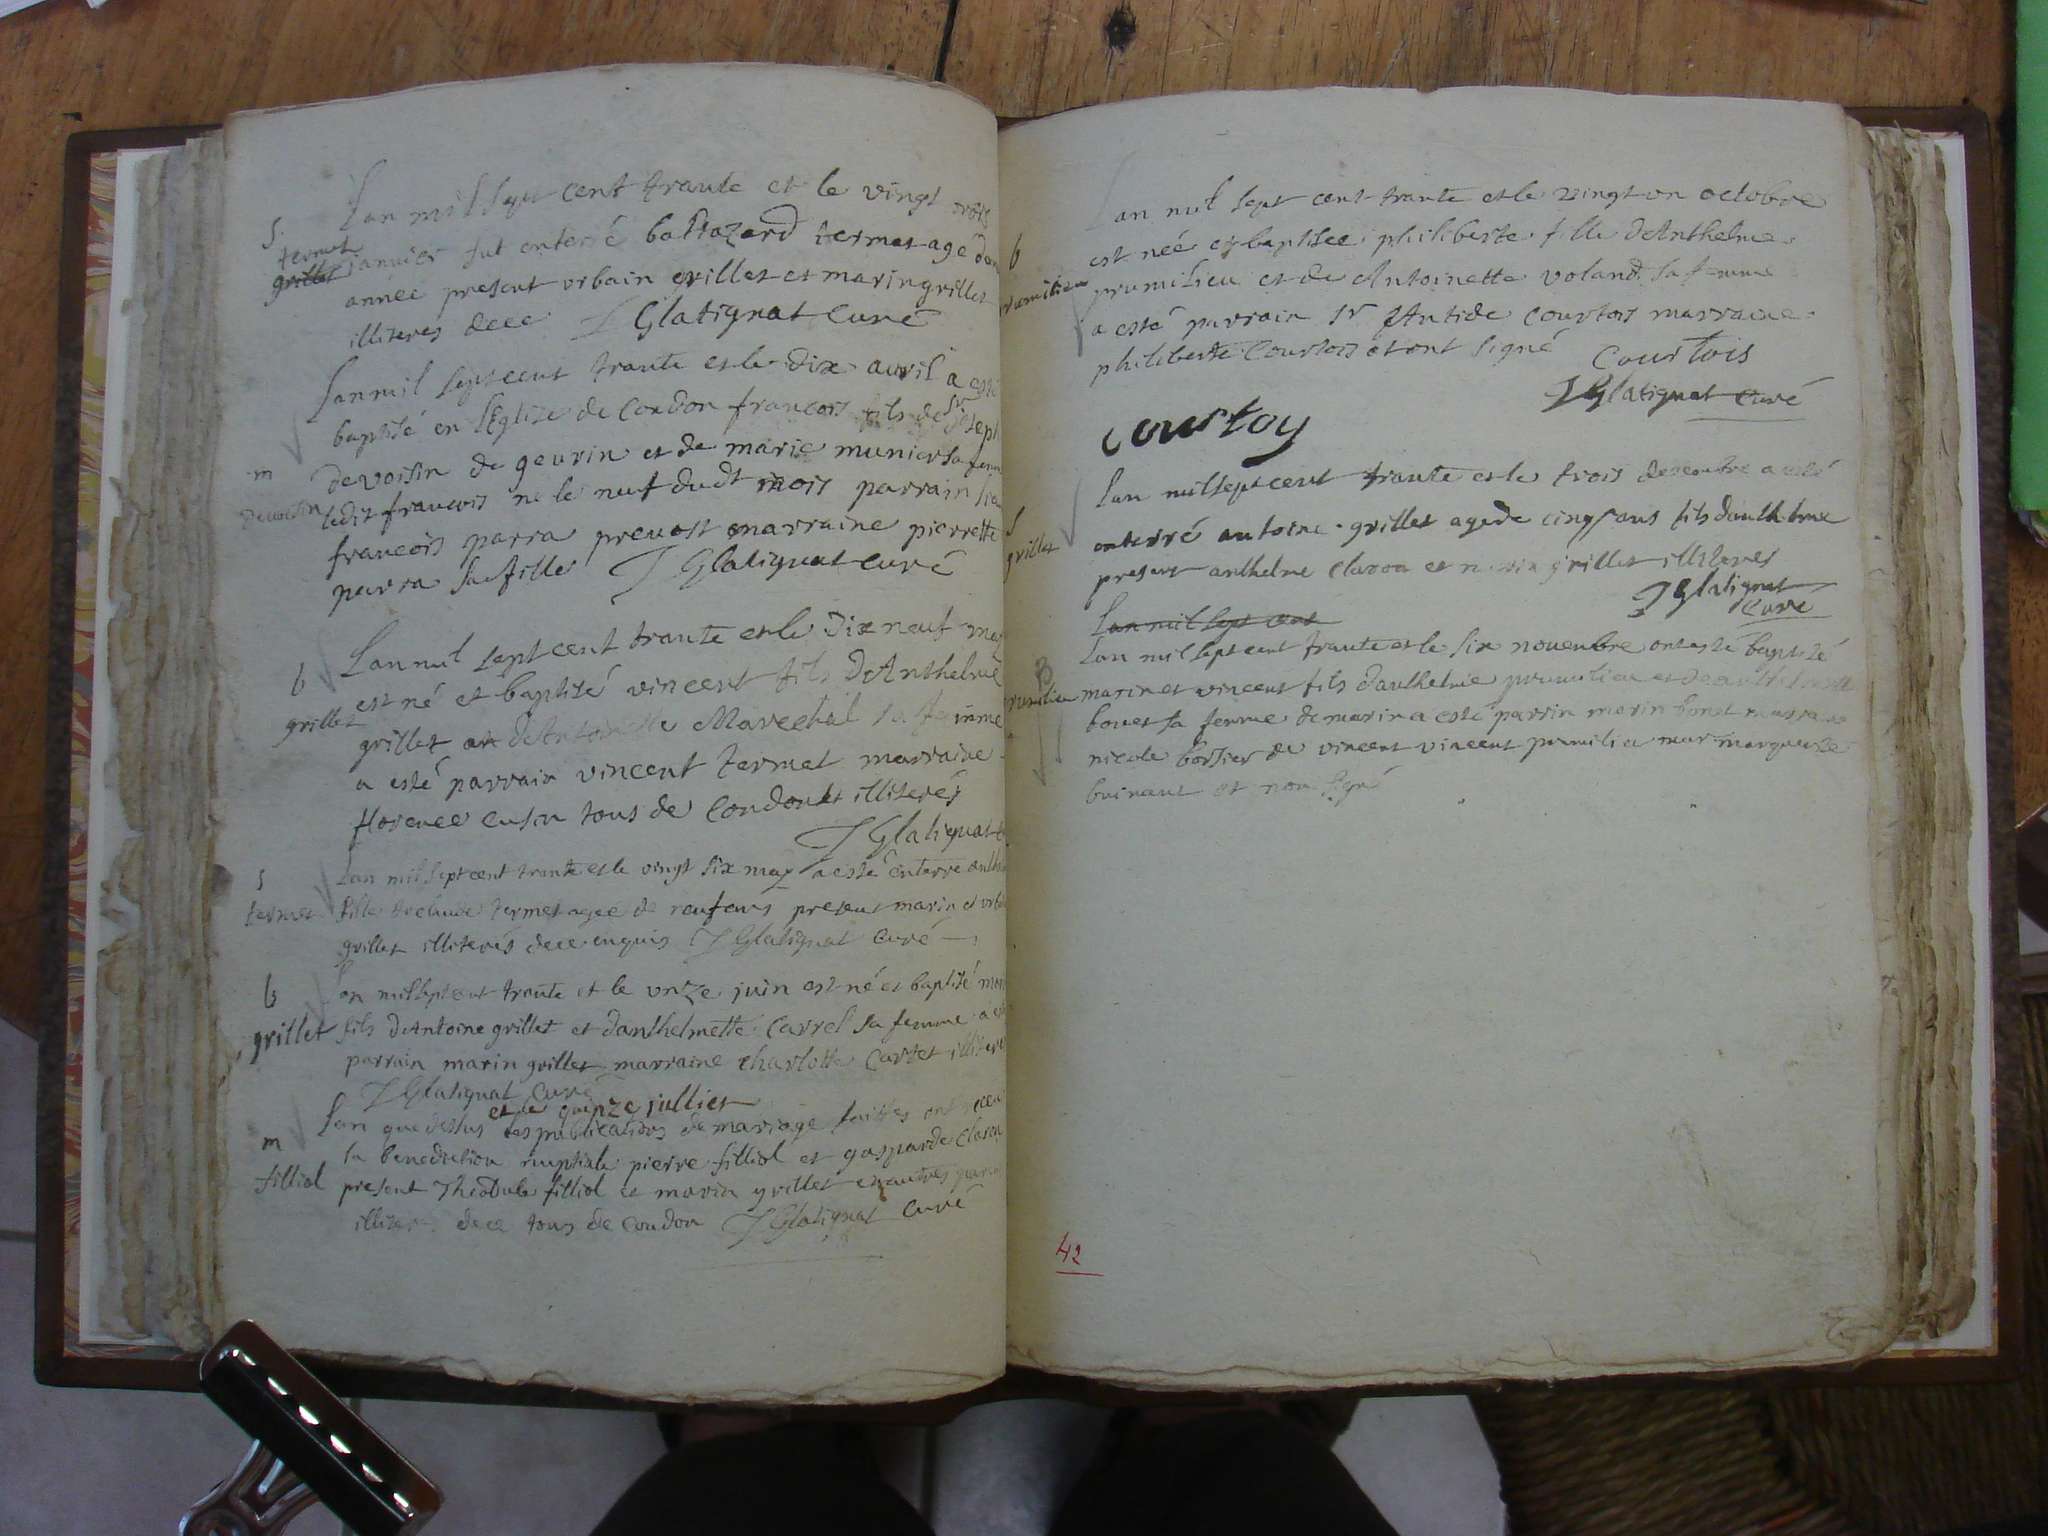 S.
termet
grillet
Lan mil sept cent trante et le vingt trois
janvier fut enterré baltazard termet agé dun
année present urbain grillet et marin grillet
illiteres dece J Glatignat Curé
m
Devoisin
Lan mil sept cent trante et le dix avril a esté
baptisé en lEglise de Condon francois fils de Sr Joseph
Devoisin de gevrin et de marie munier sa femme
ledit francois né le neuf dudt mois parrain
francois parra prevost marraine pierrette
parra sa fille J Glatignat curé
b
grillet
Lan mil sept cent trante et le dix neuf may
est né et baptisé vincent fils DeAnthelme
grillet et DeAntoinette Marechal sa femme
a esté parrain vincent termet marraine
florence cusin tous de Condon et illiterés
J Glatignat
S
termet
Lan mil sept cent trante et le vingt six may a esté enterré
fille de claude termet agee de neuf ans present marin et urbain
grillet illiterés dece enquis J Glatignat Curé
b
grillet
Lan mil sept cent trante et le unze juin est né et baptisé
fils DeAntoine grillet et danthelmette Carrel sa femme a esté
parrain marin grillet marraine charlotte Cartet
J Glatignat Curé
m
filliol
et le quinze juillet
Lan que dessus les publications de mariage faittes ont receu
la benediction nuptiale pierre filliol et gasparde Claron
present Theodule filliol et marin grillet
illiter. dece tous de Condon J Glatignat Curé
b
prumilieu
Lan mil sept cent trante et le vingt un octobre
est née et baptisee philiberte fille deAnthelme
prumilieu et de Antoinette voland sa femme
a esté parrain Sr Antide Courtois marraine
philiberte Courtois et ont signé Courtois
J Glatignat Curé
courtoy
S
grillet
Lan mil sept cent trante et le trois decembre a esté
enterré antoine grillet agé de cinq ans fils danthelme
present anthelme claron et marin grillet illiteres
J Glatignat
Curé
Lan mil sept cent
B
prumilieu
Lan mil sept cent trante et le six novembre ont esté baptisé
marin et vincent fils danthelme prumilieu et de
bouet sa femme de marin a esté parrin marin bonet marraine
nicole bossier de vincent vincent prumilieu mar marguerite
buinant et non signé
42